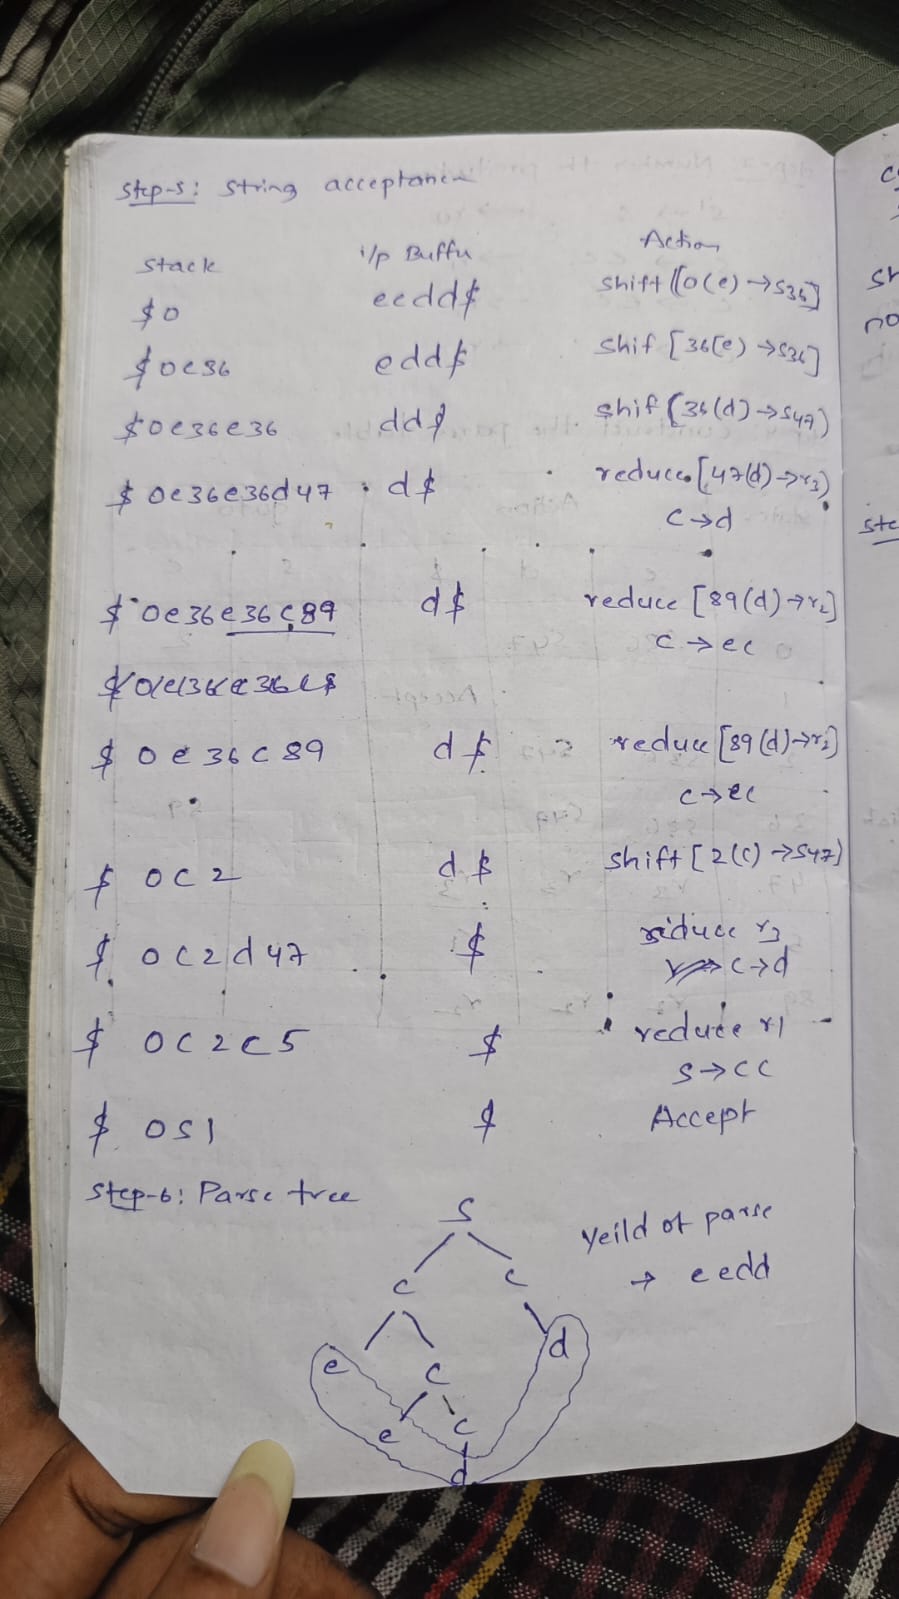 Step-5: String acceptance
Stack i/p Buffer Action
$0 eedd$ shift [[0(e)→S36]
$0e36 edd$ shif [36(e)→S36]
$0e36e36 dd$ shif [36(d)→S47)
$0e36e36d47 d$ reduce [47(d)→r3)
C→d
$0e36e36C89 d$ reduce [89(d)→r2]
C→eC
$0e36C89 d$ reduce [89(d)→r2]
C→eC
$0C2 d$ shift [2(C)→S47)
$0C2d47 $ reduce r3
C→d
$0C2C5 $ reduce r1
S→CC
$0S1 $ Accept
Step-6: Parse tree
S
Yeild of parse
C C
→ eedd
e C d
e C
d